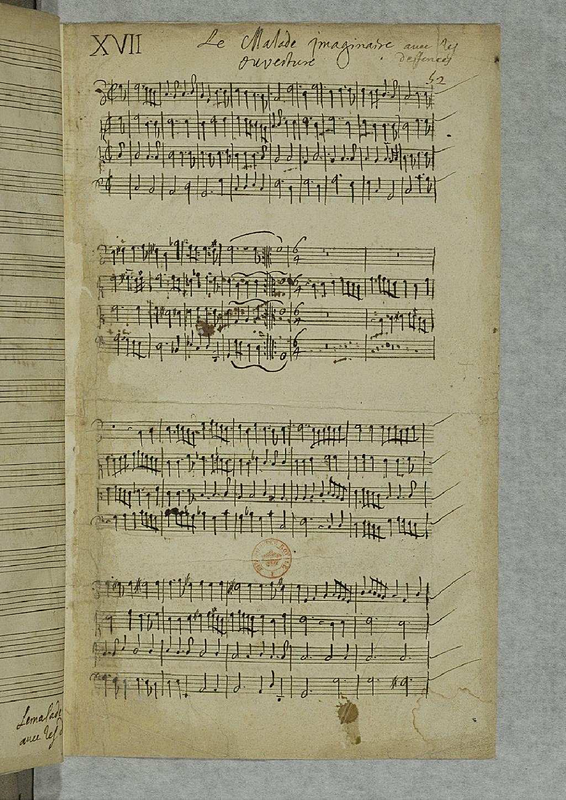 XVII
Le Malade imaginaire avec les
deffences
ouverture
52
6
4
6
4
6
4
6
4
Lemalade
avec les d